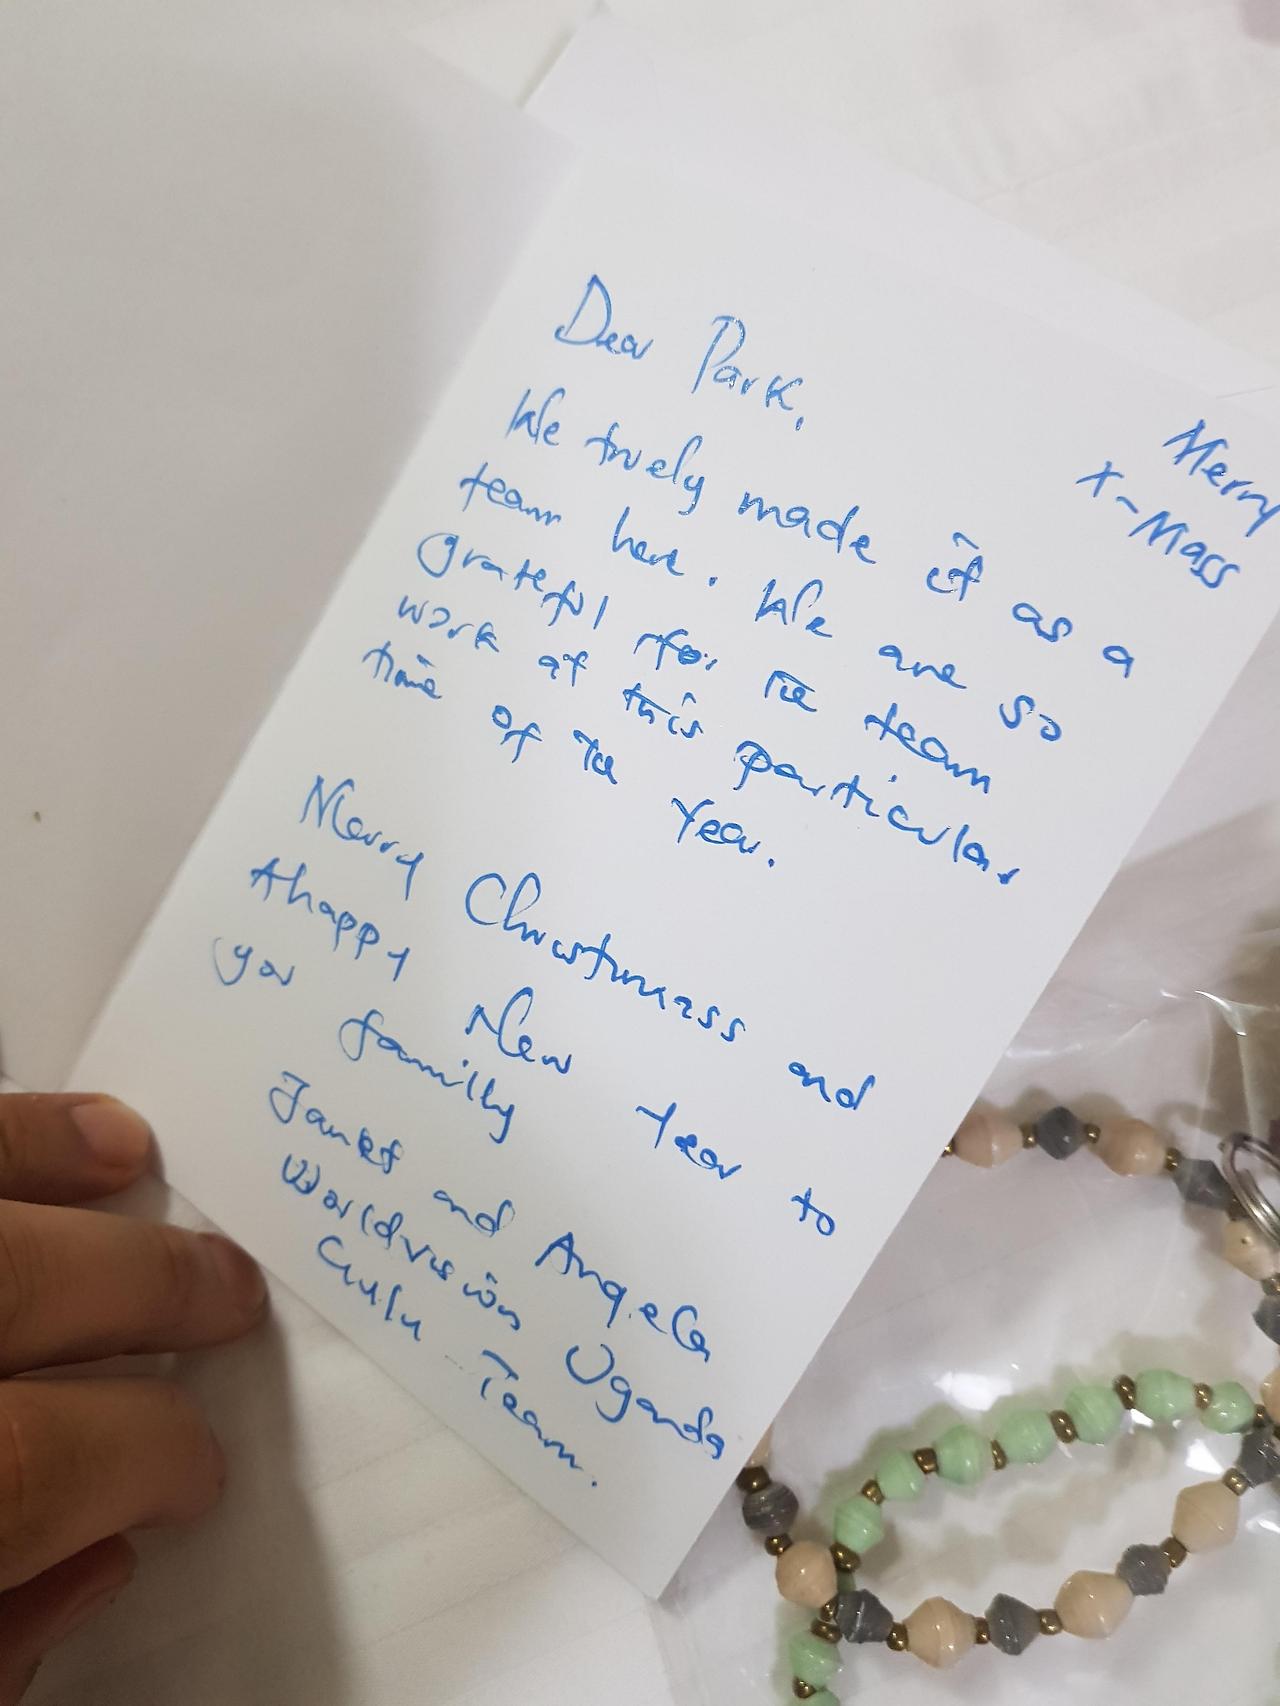 Dear Park,
Merry
X-Mass
We truely made it as a
team here. We are so
grateful for the team
work at this particular
time of the Year.
Merry Christmass and
A happy New Year to
you familly
Janet and Angela
Worldvision Uganda
Gulu Team.